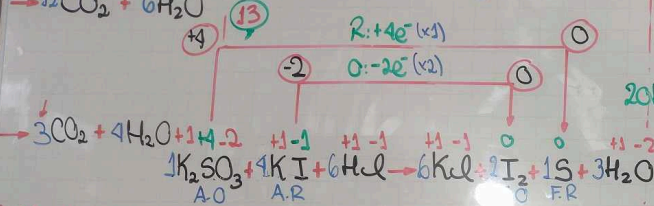 →12CO₂ + 6H₂O
13
+4 R:+4e⁻(x1) 0
-2 O:-2e⁻(x2) 0
20
→3CO₂ + 4H₂O +1 +4 -2 +1 -1 +1 -1 +1 -1 0 0 +1 -2
1K₂SO₃ + 4KI + 6HCl → 6KCl + 2I₂ + 1S + 3H₂O
A.O A.R O F.R